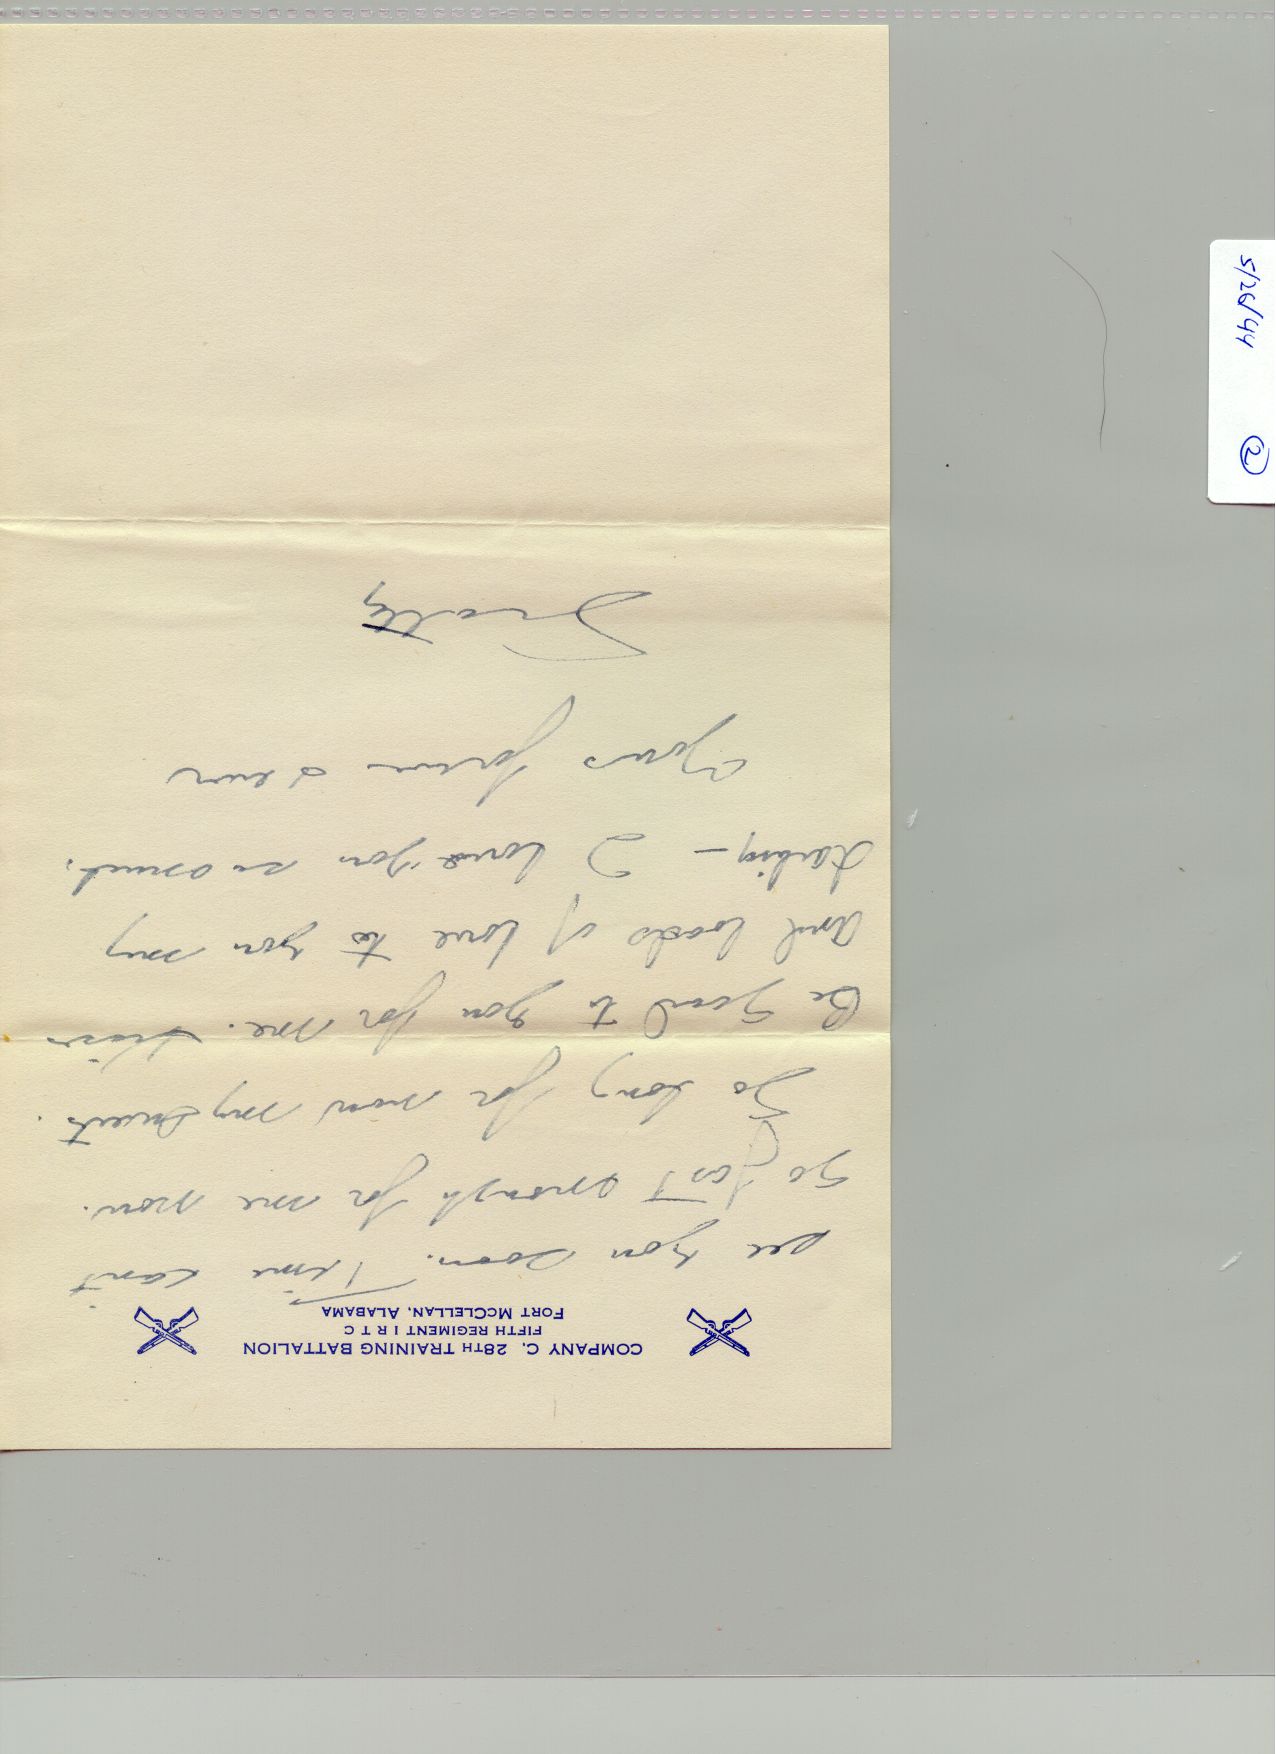 COMPANY C, 28TH TRAINING BATTALION
FIFTH REGIMENT I R T C
FORT MCCLELLAN, ALABAMA
see you soon. Time can't
go fast enough for me now.
So long for now my Sweets.
Be good to you for me.
and loads of love to you my
darling - I love you so much.
Yours forever & ever
5/26/44
2